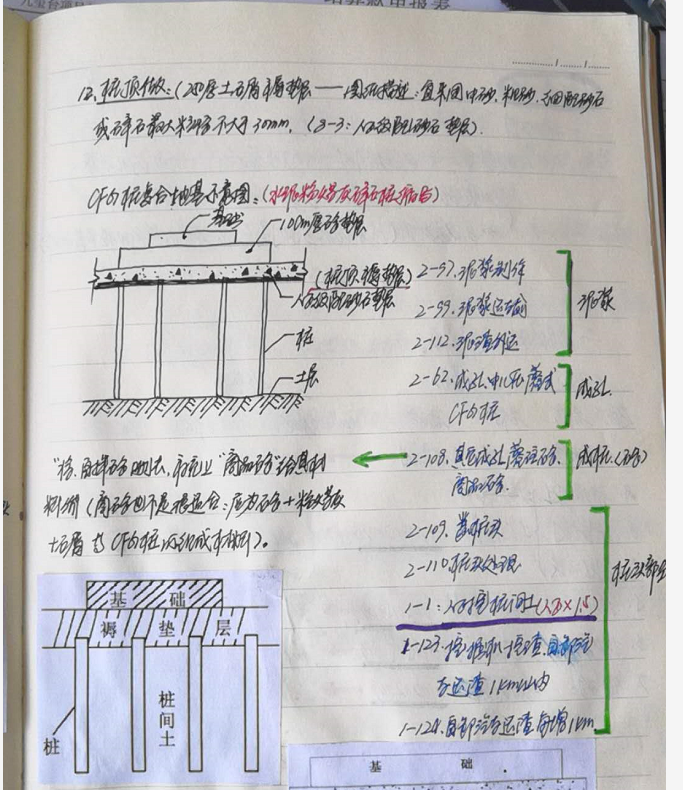 12、桩顶作做:(250厚土石屑褥垫层——图纸描述:宜采用中砂、粗砂、级配砂石
或碎石最大粒径不大于30mm。(8-3:人工级配砂石垫层)
CFG桩复合地基示意图:(水泥粉煤灰碎石桩
基础
100厚砼垫层
(桩顶、褥垫层)
人工级配砂石垫层
桩
土层
2-97、泥浆制作
2-99、泥浆运输
2-112、泥渣外运
泥浆
2-62、成孔
CFG桩
成孔
2-108、其它成孔灌注砼
商品砼
成桩(砼)
料剂(商砼也不是很适合:应为砼+粉煤灰
+石屑 为CFG桩的组成材料)。
2-109、凿桩头
2-110桩头处理
1-1:人工挖桩间土(人工×1.5)
1-123、挖掘机挖渣、自卸汽
车运渣1km以内
1-124、自卸汽车运渣每增1km
桩头部
基 础
褥 垫 层
桩间土
桩
基 础